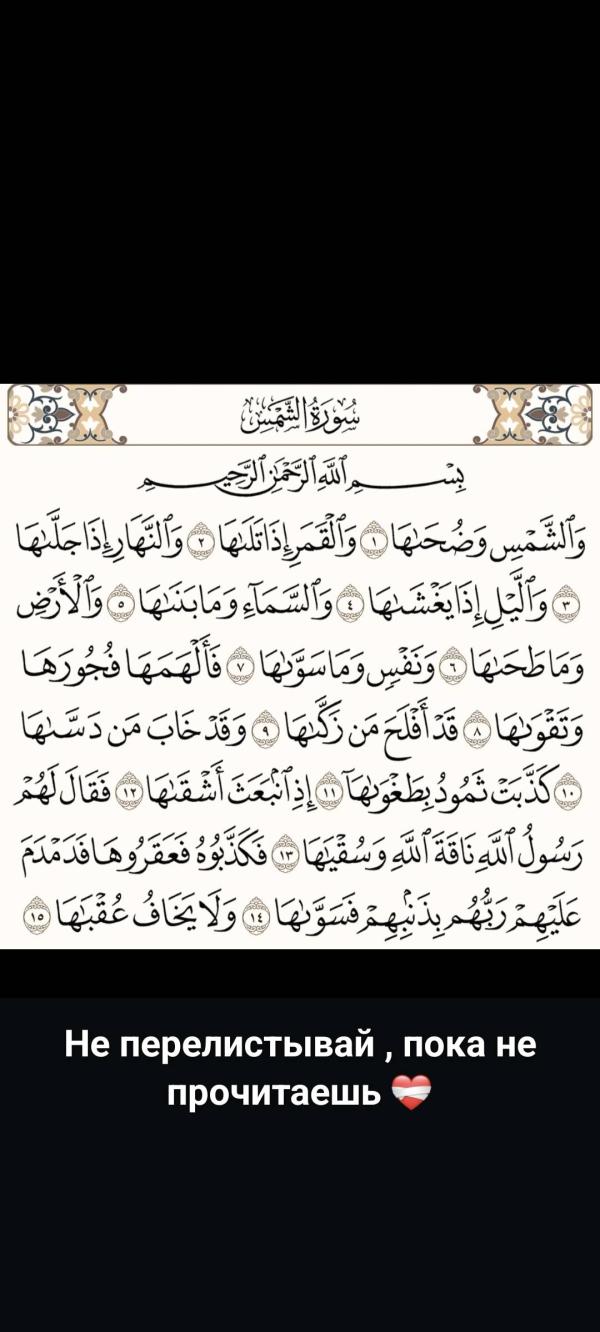 سُورَةُ الشَّمْسِ
بِسْمِ ٱللَّهِ ٱلرَّحْمَٰنِ ٱلرَّحِيمِ
وَٱلشَّمْسِ وَضُحَىٰهَا ١ وَٱلْقَمَرِ إِذَا تَلَىٰهَا ٢ وَٱلنَّهَارِ إِذَا جَلَّىٰهَا
٣ وَٱلَّيْلِ إِذَا يَغْشَىٰهَا ٤ وَٱلسَّمَآءِ وَمَا بَنَىٰهَا ٥ وَٱلْأَرْضِ
وَمَا طَحَىٰهَا ٦ وَنَفْسٍ وَمَا سَوَّىٰهَا ٧ فَأَلْهَمَهَا فُجُورَهَا
وَتَقْوَىٰهَا ٨ قَدْ أَفْلَحَ مَن زَكَّىٰهَا ٩ وَقَدْ خَابَ مَن دَسَّىٰهَا
١٠ كَذَّبَتْ ثَمُودُ بِطَغْوَىٰهَآ ١١ إِذِ ٱنۢبَعَثَ أَشْقَىٰهَا ١٢ فَقَالَ لَهُمْ
رَسُولُ ٱللَّهِ نَاقَةَ ٱللَّهِ وَسُقْيَٰهَا ١٣ فَكَذَّبُوهُ فَعَقَرُوهَا فَدَمْدَمَ
عَلَيْهِمْ رَبُّهُم بِذَنۢبِهِمْ فَسَوَّىٰهَا ١٤ وَلَا يَخَافُ عُقْبَٰهَا ١٥
Не перелистывай , пока не
прочитаешь ❤️‍🩹